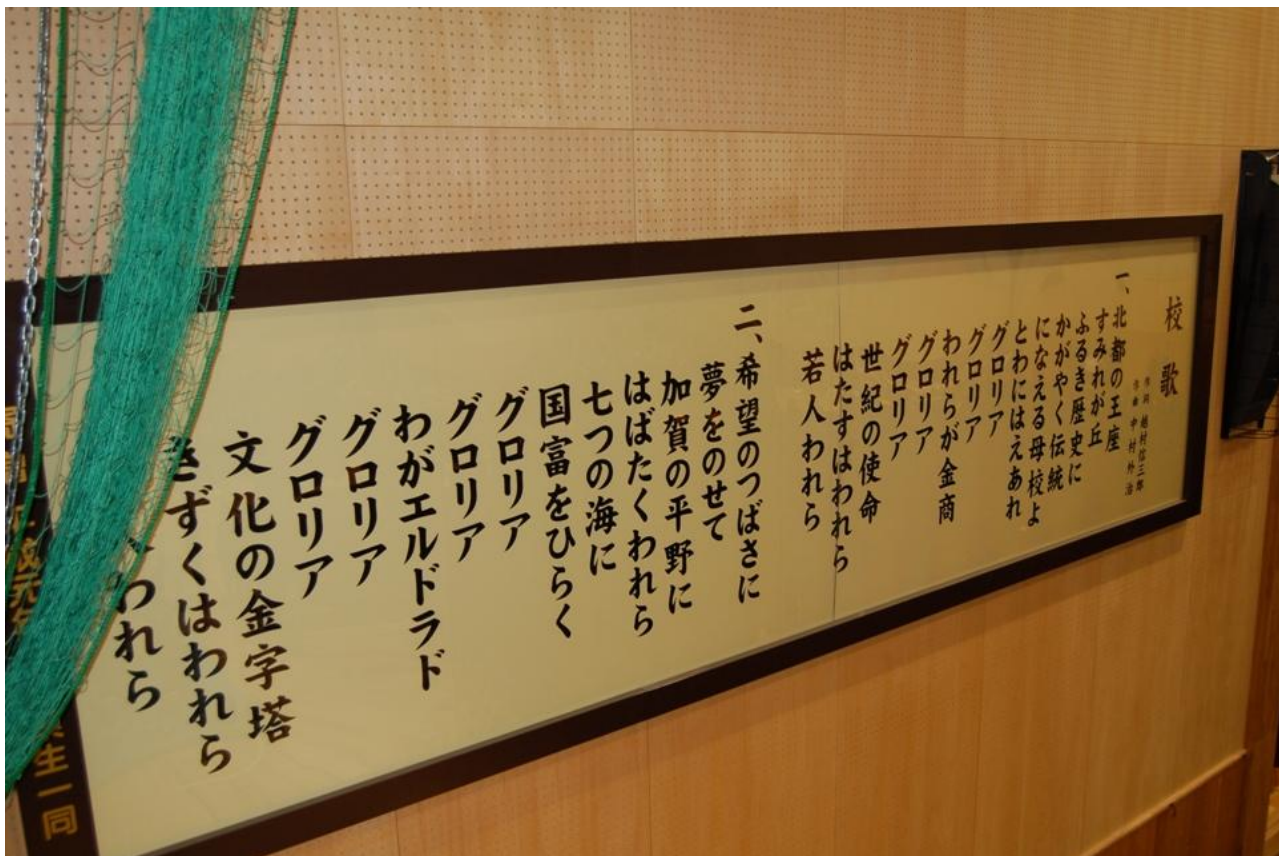 校歌
作詞 越村信三郎
作曲 中村外治
一、北都の王座
すみれが丘
ふるき歴史に
かがやく伝統
になえる母校よ
とわにはえあれ
グロリア
グロリア
われらが金商
グロリア
グロリア
世紀の使命
はたすはわれら
若人われら
二、希望のつばさに
夢をのせて
加賀の平野に
はばたくわれら
七つの海に
国富をひらく
グロリア
グロリア
わがエルドラド
グロリア
グロリア
文化の金字塔
きずくはわれら
われら
生一同